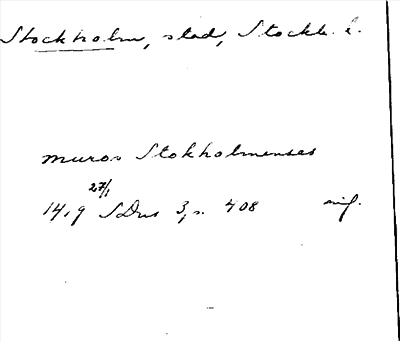 Stockholm, stad, Stockh. l.
muros Stokholmenses
27/1
1419 SDns 3, s. 408 mf.